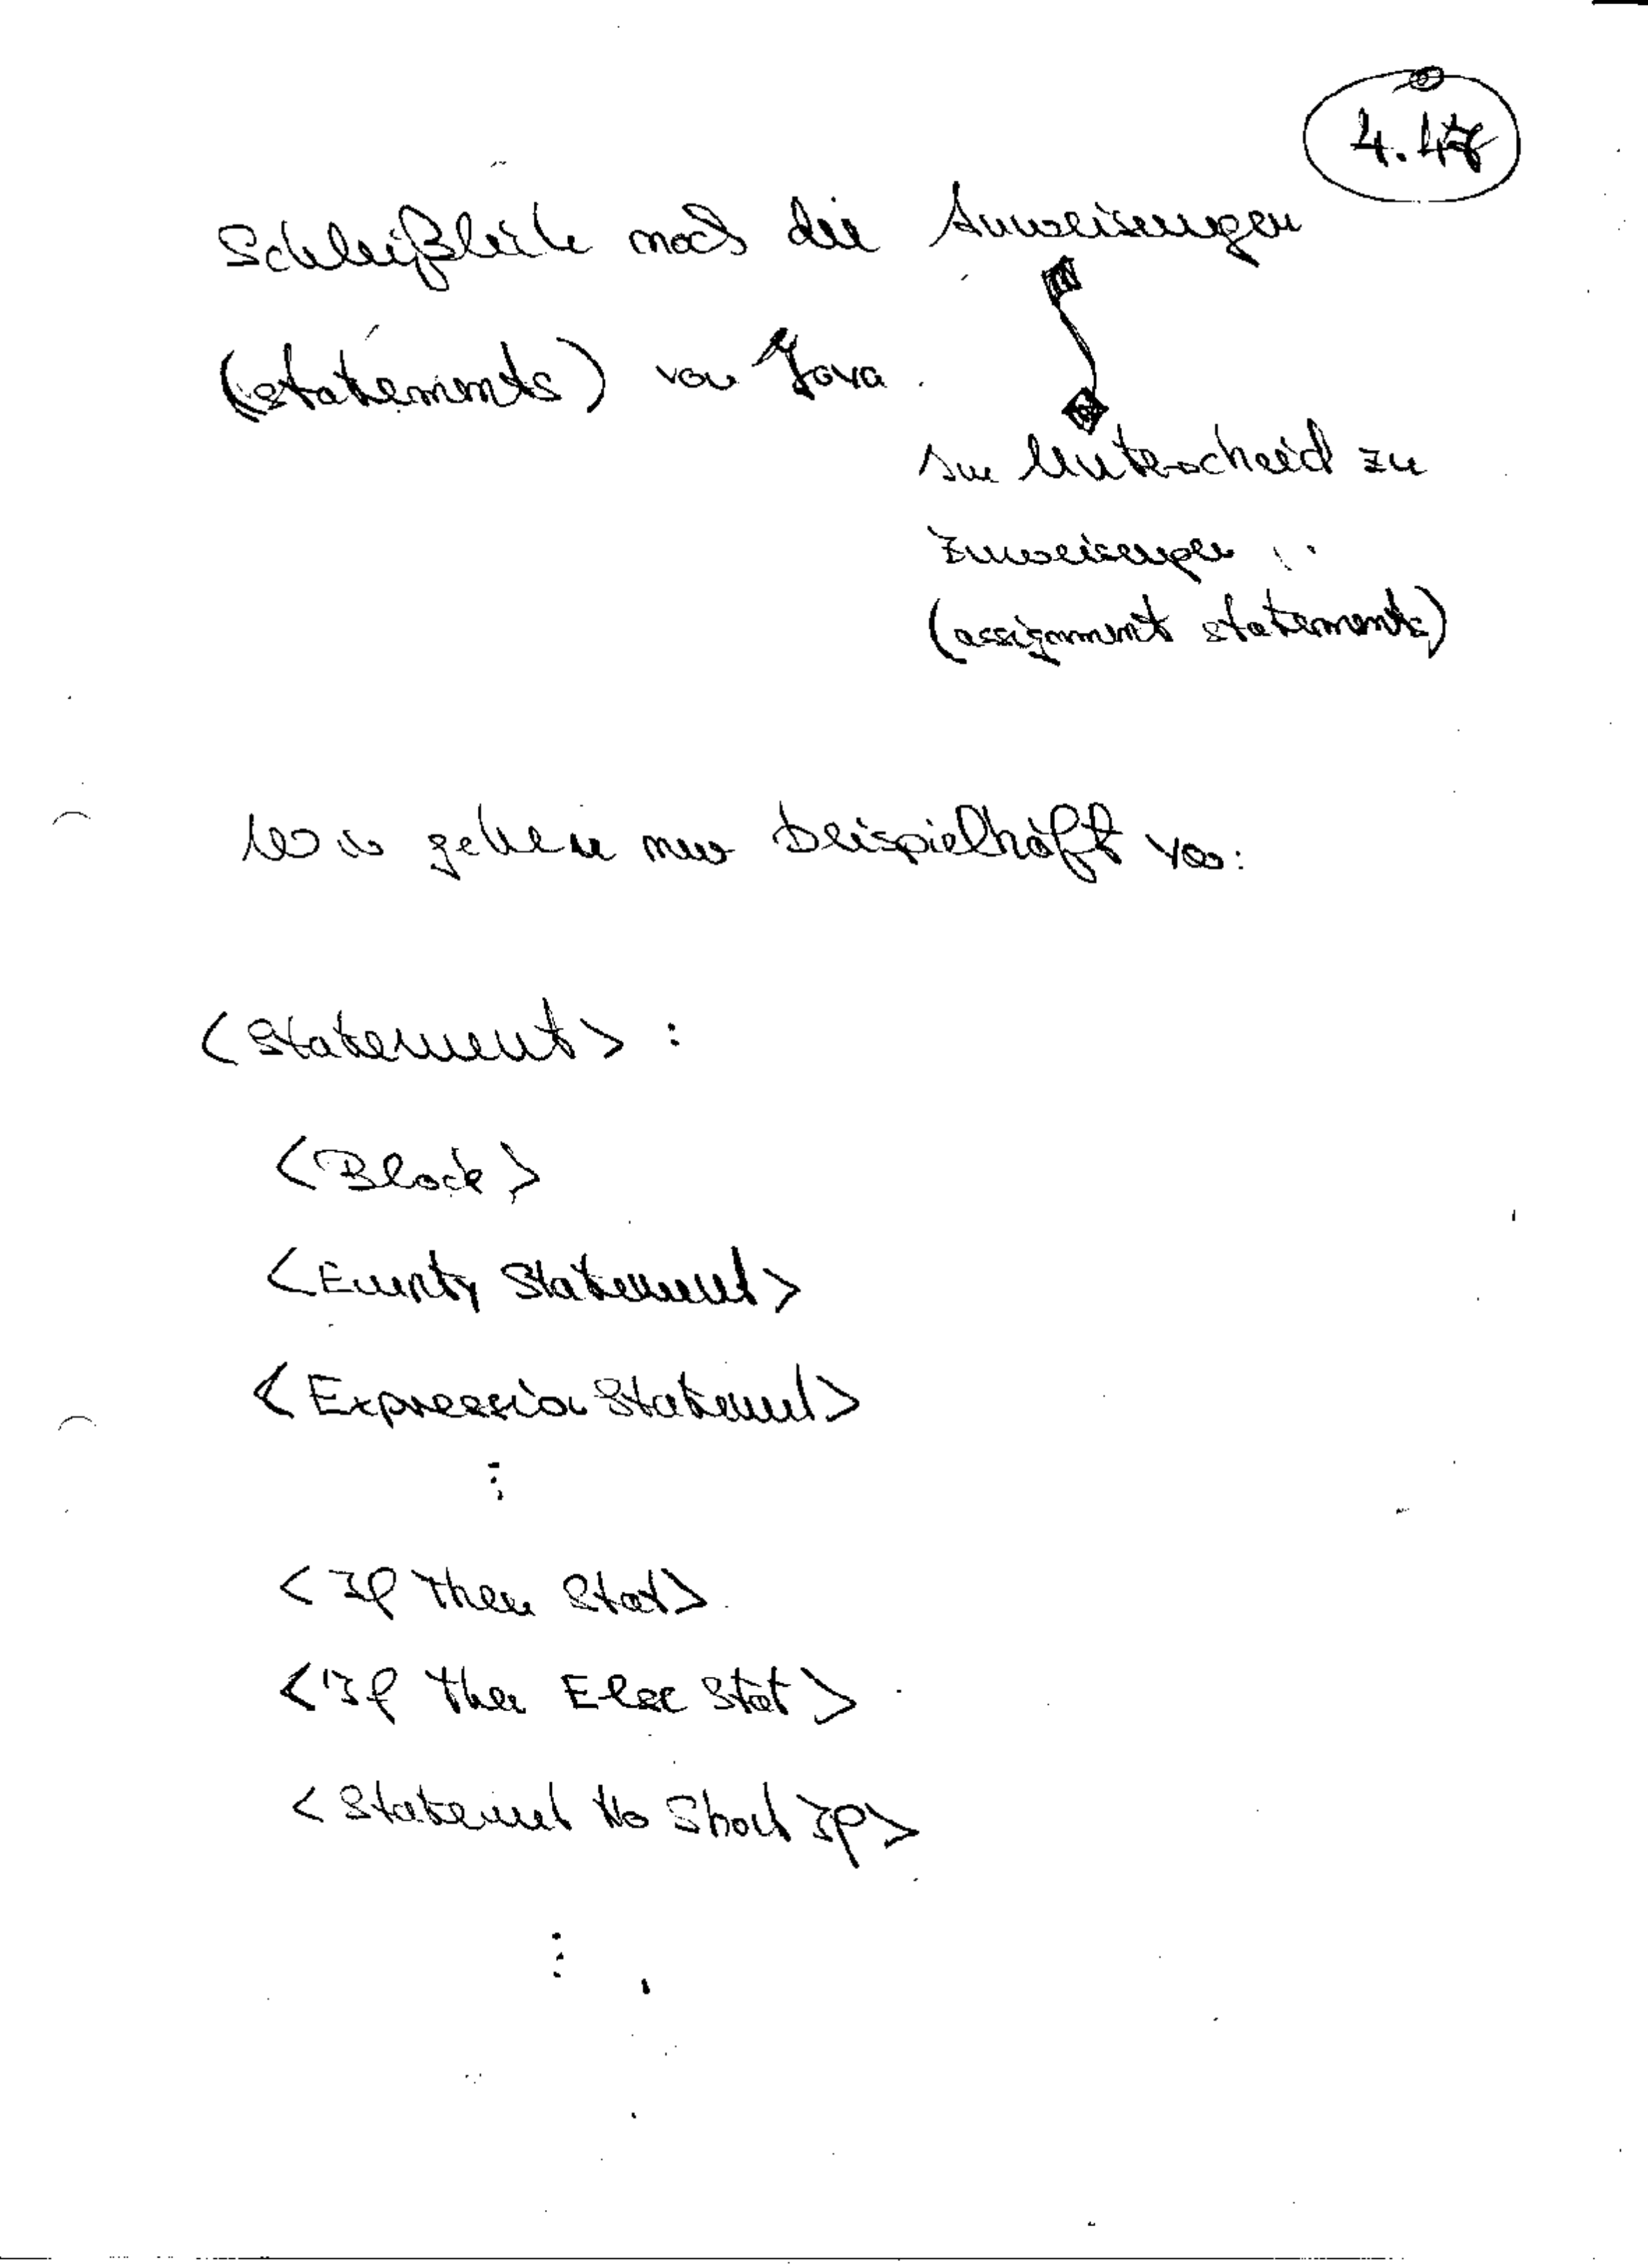 4.47
Schließlich noch die Anweisungen
(statements) von Java.
Im Unterschied zu
Zuweisungen
(assignment statements)
Wir gehen nur beispielhaft vor:
<Statement> :
<Block>
<Empty Statement>
<Expression Statement>
⋮
<If then Stat>
<If then Else Stat>
<Statement No Short If>
⋮